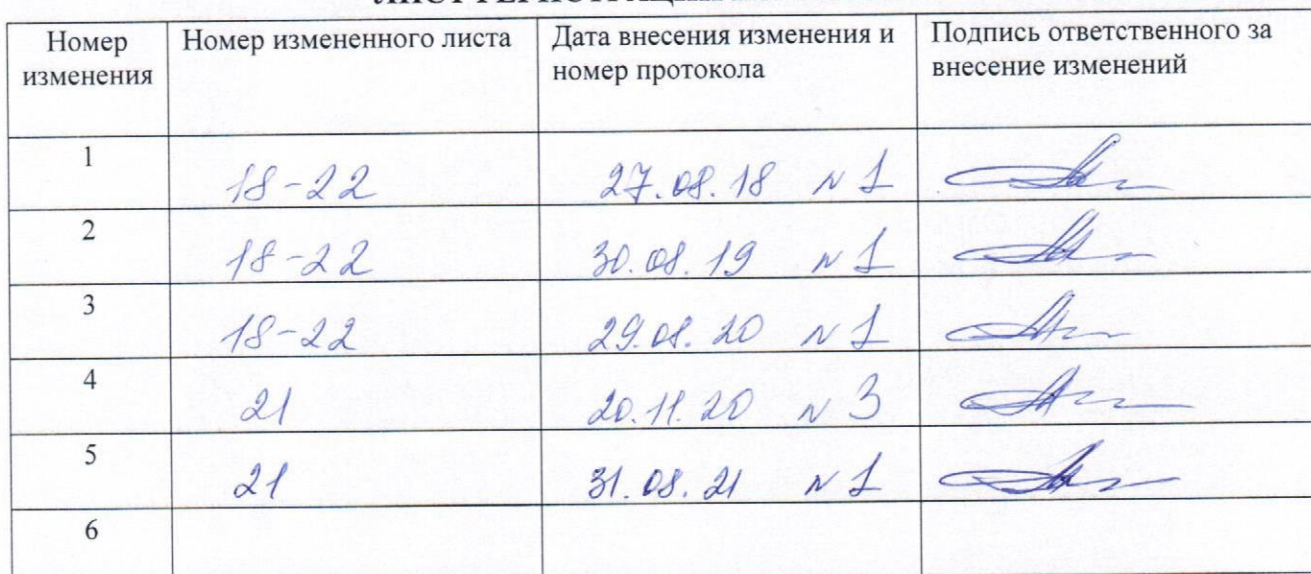 Номер изменения Номер измененного листа Дата внесения изменения и номер протокола Подпись ответственного за внесение изменений
1 18-22 27.08.18 N 1
2 18-22 30.08.19 N 1
3 18-22 29.08.20 N 1
4 21 20.11.20 N 3
5 21 31.08.21 N 1
6